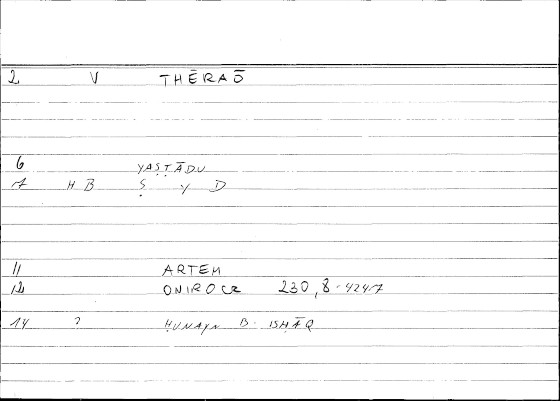 2 V THĒRAŌ
6 YAṢṬĀDU
7 HB Ṣ Y D
11 ARTEM
12 ONIROCR 230,8-424,7
14 ? ḤUNAYN B. ISḤĀQ